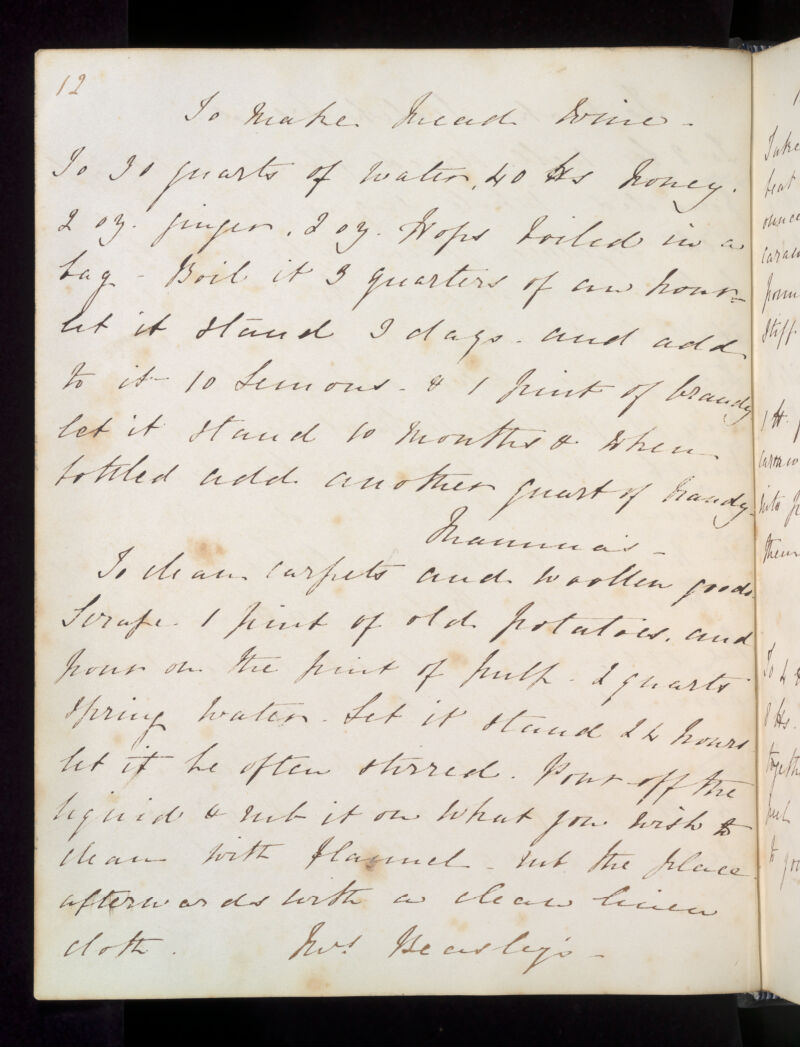 12
To make Mead Wine -
To 30 quarts of water, 40 lbs honey.
2 oz. ginger, 2 oz. Hops boiled in a
bag - Boil it 3 quarters of an hour -
let it stand 3 days - and add
to it 10 Lemons - & 1 pint of brandy
let it stand 10 months & when
bottled add another quart of brandy -
Mamma's -
To clean carpets and woollen goods
Scrape 1 pint of old potatoes, and
pour on the pint of pulp - 2 quarts
Spring water - Let it stand 24 hours
let it be often stirred. Pour off the
liquid & rub it on what you wish to
clean with flannel - rub the place
afterwards with a clean linen
cloth. Mrs Beasley's -
Take
beat
ounce
stiff
1 lb
into
them
To 4
8 lbs.
to